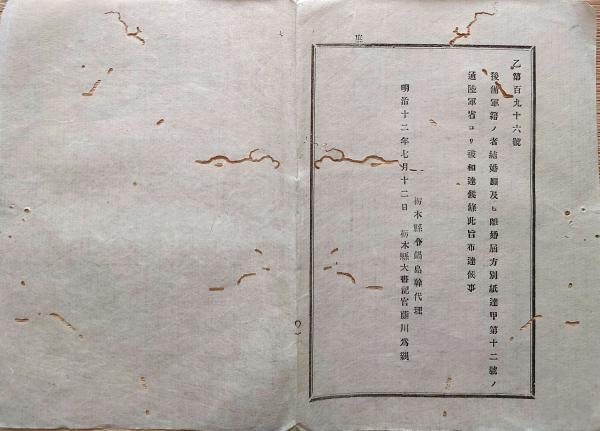 乙第百九十六號
後備軍籍ノ者結婚願及ヒ離婚屆方別紙達甲第十二號ノ
通陸軍省ヨリ被相達候條此旨布達候事
明治十二年七月十二日
栃木縣令鍋島幹代理
栃木縣大書記官藤川爲親